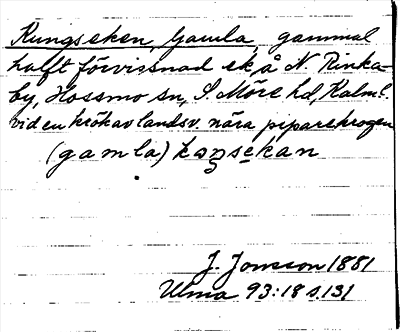 Kungseken, Gamla, gammal
halft förvissnad ek, å N. Rinka-
by, Hossmo sn, S. Möre hd, Kalm l.
vid en krök av landsv. nära piparekrogen
(gamla) koŋsekan
J. Jonsson 1881
Ulma 93:18 s. 131